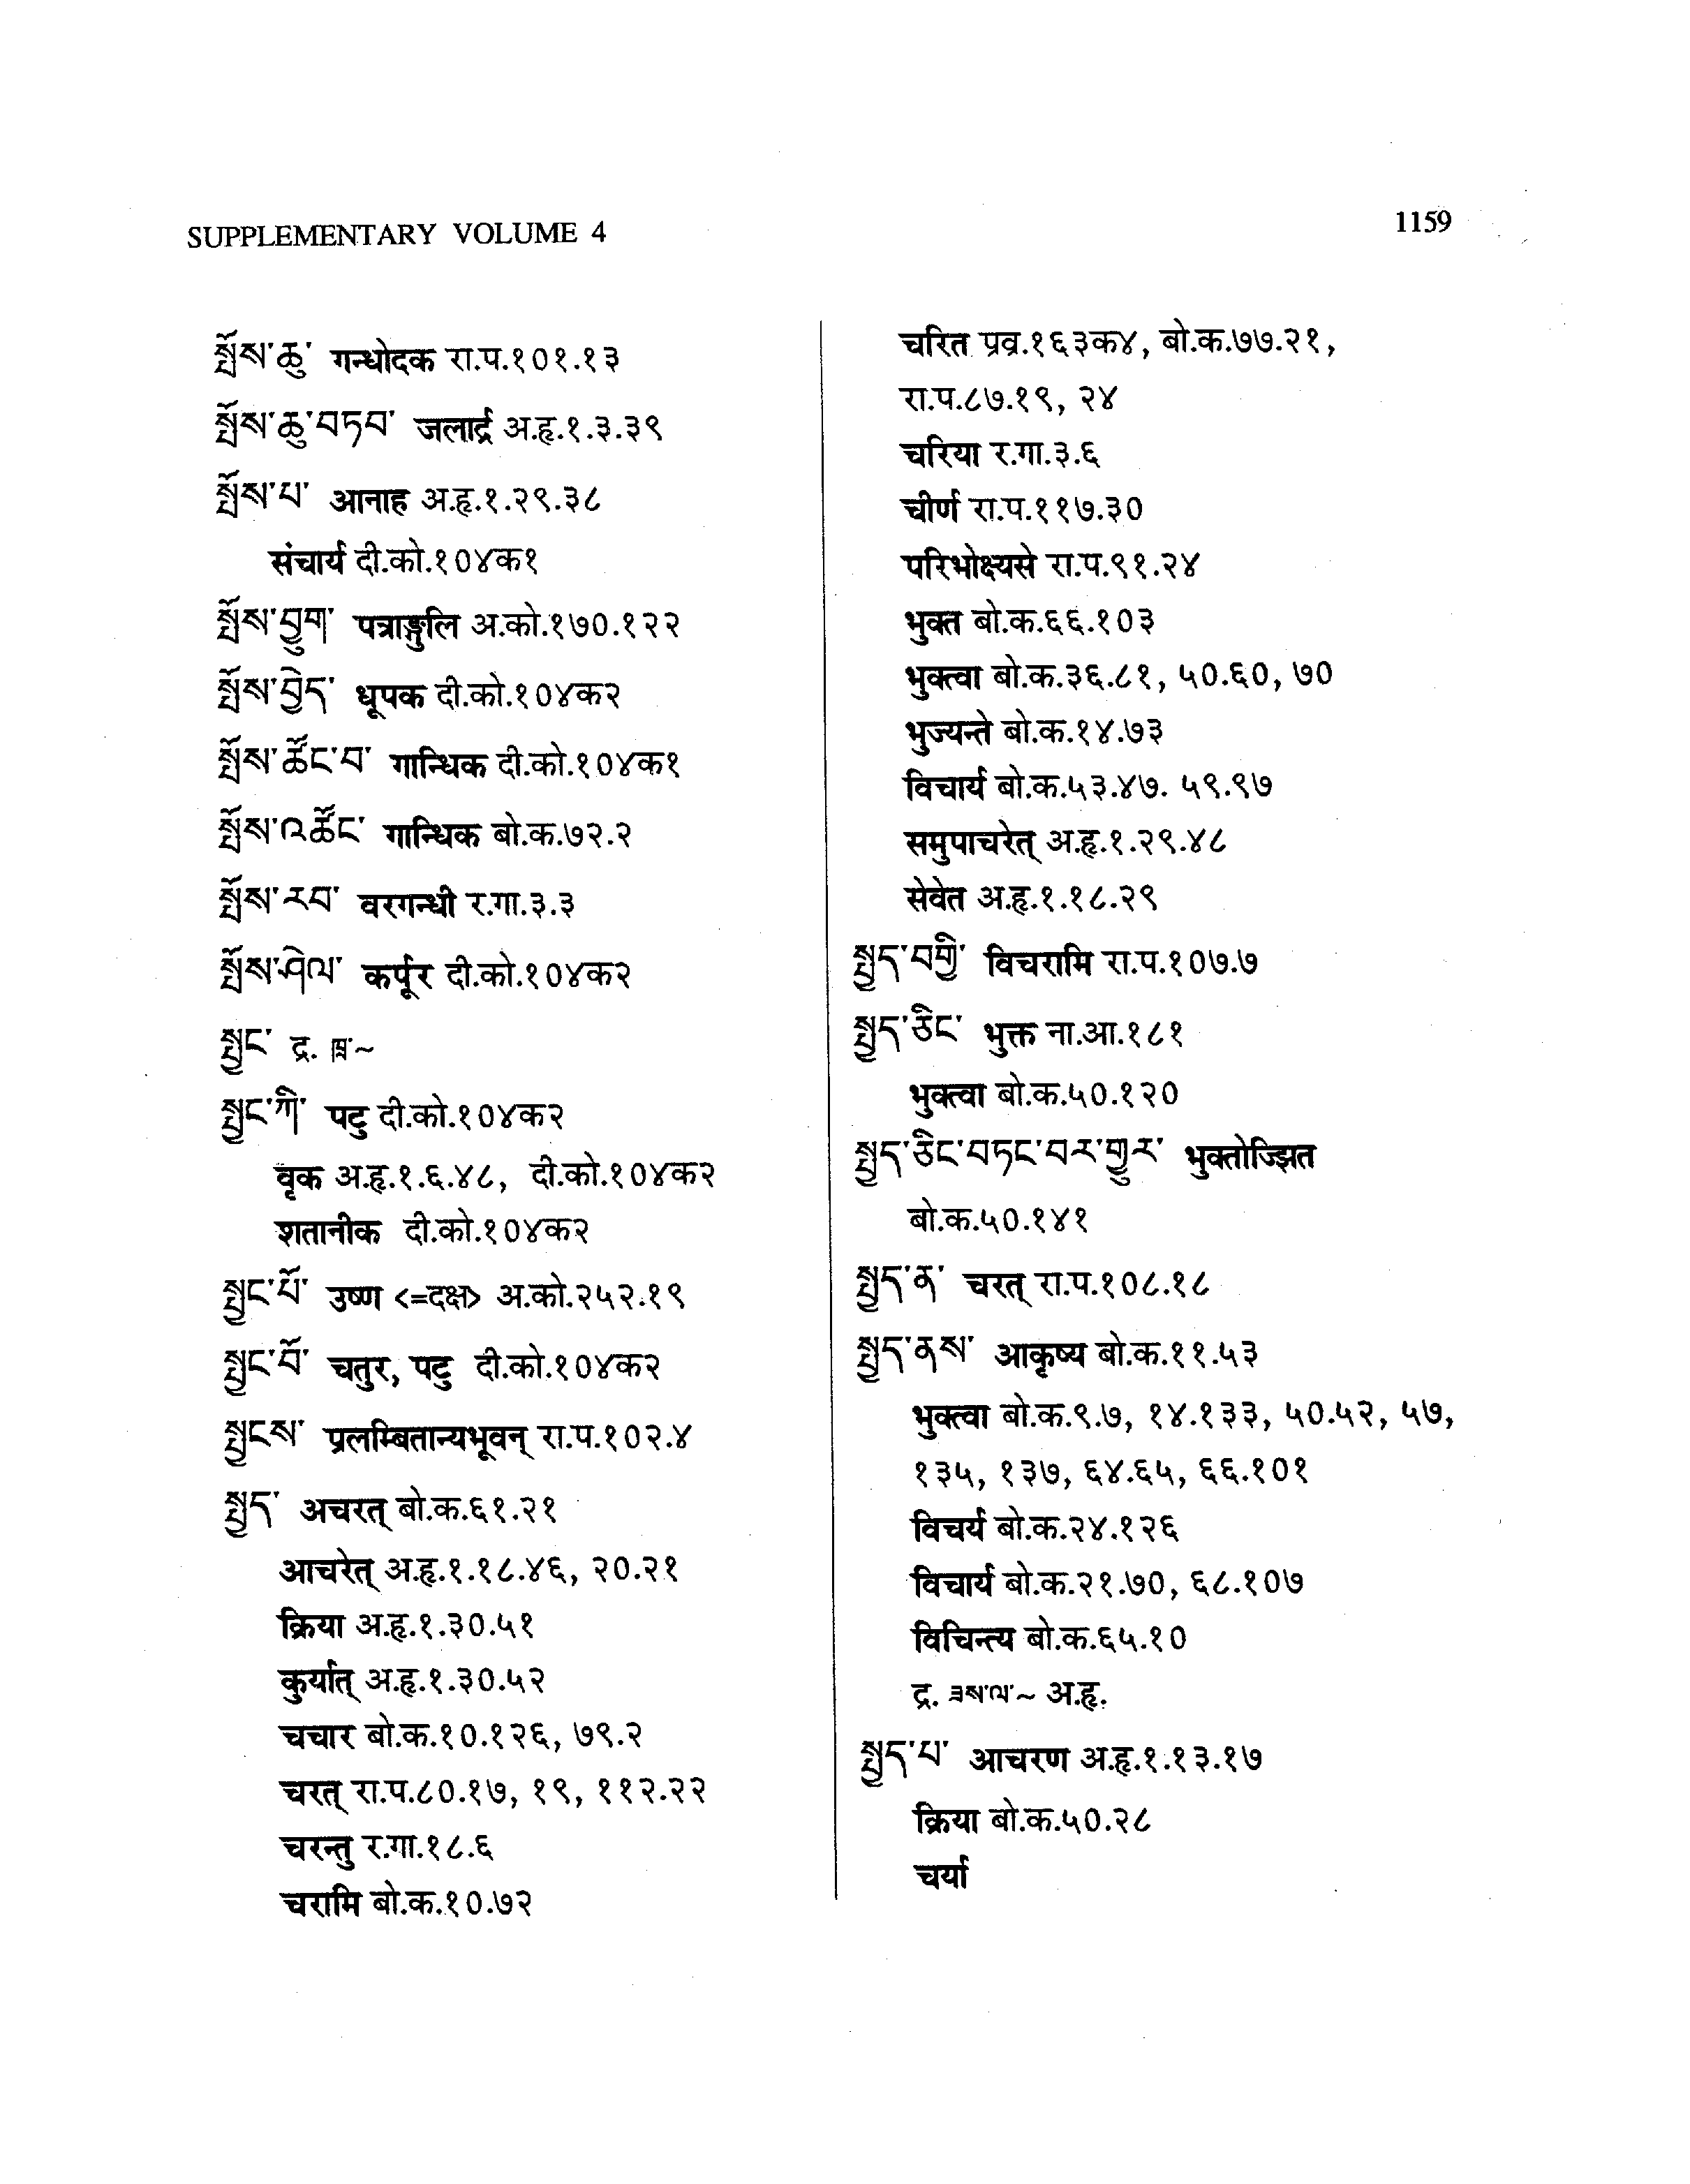 SUPPLEMENTARY VOLUME 4
1159
སྤོས་ཆུ་ गन्धोदक रा.प.१०१.१३
སྤོས་ཆུ་བཏབ་ जलार्द्र अ.हृ.१.३.३९
སྤོས་པ་ आनाह अ.हृ.१.२९.३८
संचार्य दी.को.१०४क१
སྤོས་བྱུག་ पत्राङ्गुलि अ.को.१७०.१२२
སྤོས་བྱེད་ धूपक दी.को.१०४क२
སྤོས་ཚོང་བ་ गान्धिक दी.को.१०४क१
སྤོས་འཚོང་ गान्धिक बो.क.७२.२
སྤོས་རབ་ वरगन्धी र.गा.३.३
སྤོས་ཤེལ་ कर्पूर दी.को.१०४क२
སྤྱང་ द्र. ~
སྤྱང་ཀི་ पटु दी.को.१०४क२
वृक अ.हृ.१.६.४८, दी.को.१०४क२
शतानीक दी.को.१०४क२
སྤྱང་པོ་ उष्ण <=दक्ष> अ.को.२५२.१९
སྤྱང་བོ་ चतुर, पटु दी.को.१०४क२
སྤྱངས་ प्रलम्बितान्यभूवन् रा.प.१०२.४
སྤྱད་ अचरत् बो.क.६१.२१
आचरेत् अ.हृ.१.१८.४६, २०.२१
क्रिया अ.हृ.१.३०.५१
कुर्यात् अ.हृ.१.३०.५२
चचार बो.क.१०.१२६, ७९.२
चरत् रा.प.८०.१७, १९, ११२.२२
चरन्तु र.गा.१८.६
चरामि बो.क.१०.७२
चरित प्रव्र.१६३क४, बो.क.७७.२१,
रा.प.८७.१९, २४
चरिया र.गा.३.६
चीर्ण रा.प.११७.३०
परिभोक्ष्यसे रा.प.९१.२४
भुक्त बो.क.६६.१०३
भुक्त्वा बो.क.३६.८१, ५०.६०, ७०
भुज्यन्ते बो.क.१४.७३
विचार्य बो.क.५३.४७. ५९.९७
समुपाचरेत् अ.हृ.१.२९.४८
सेवेत अ.हृ.१.१८.२९
སྤྱད་བགྱི་ विचरामि रा.प.१०७.७
སྤྱད་ཅིང་ भुक्त ना.आ.१८१
भुक्त्वा बो.क.५०.१२०
སྤྱད་ཅིང་བཏང་བར་གྱུར་ भुक्तोज्झित
बो.क.५०.१४१
སྤྱད་ན་ चरत् रा.प.१०८.१८
སྤྱད་ནས་ आकृष्य बो.क.११.५३
भुक्त्वा बो.क.९.७, १४.१३३, ५०.५२, ५७,
१३५, १३७, ६४.६५, ६६.१०१
विचर्य बो.क.२४.१२६
विचार्य बो.क.२१.७०, ६८.१०७
विचिन्त्य बो.क.६५.१०
द्र. ཟས་ལ་~ अ.हृ.
སྤྱད་པ་ आचरण अ.हृ.१.१३.१७
क्रिया बो.क.५०.२८
चर्या